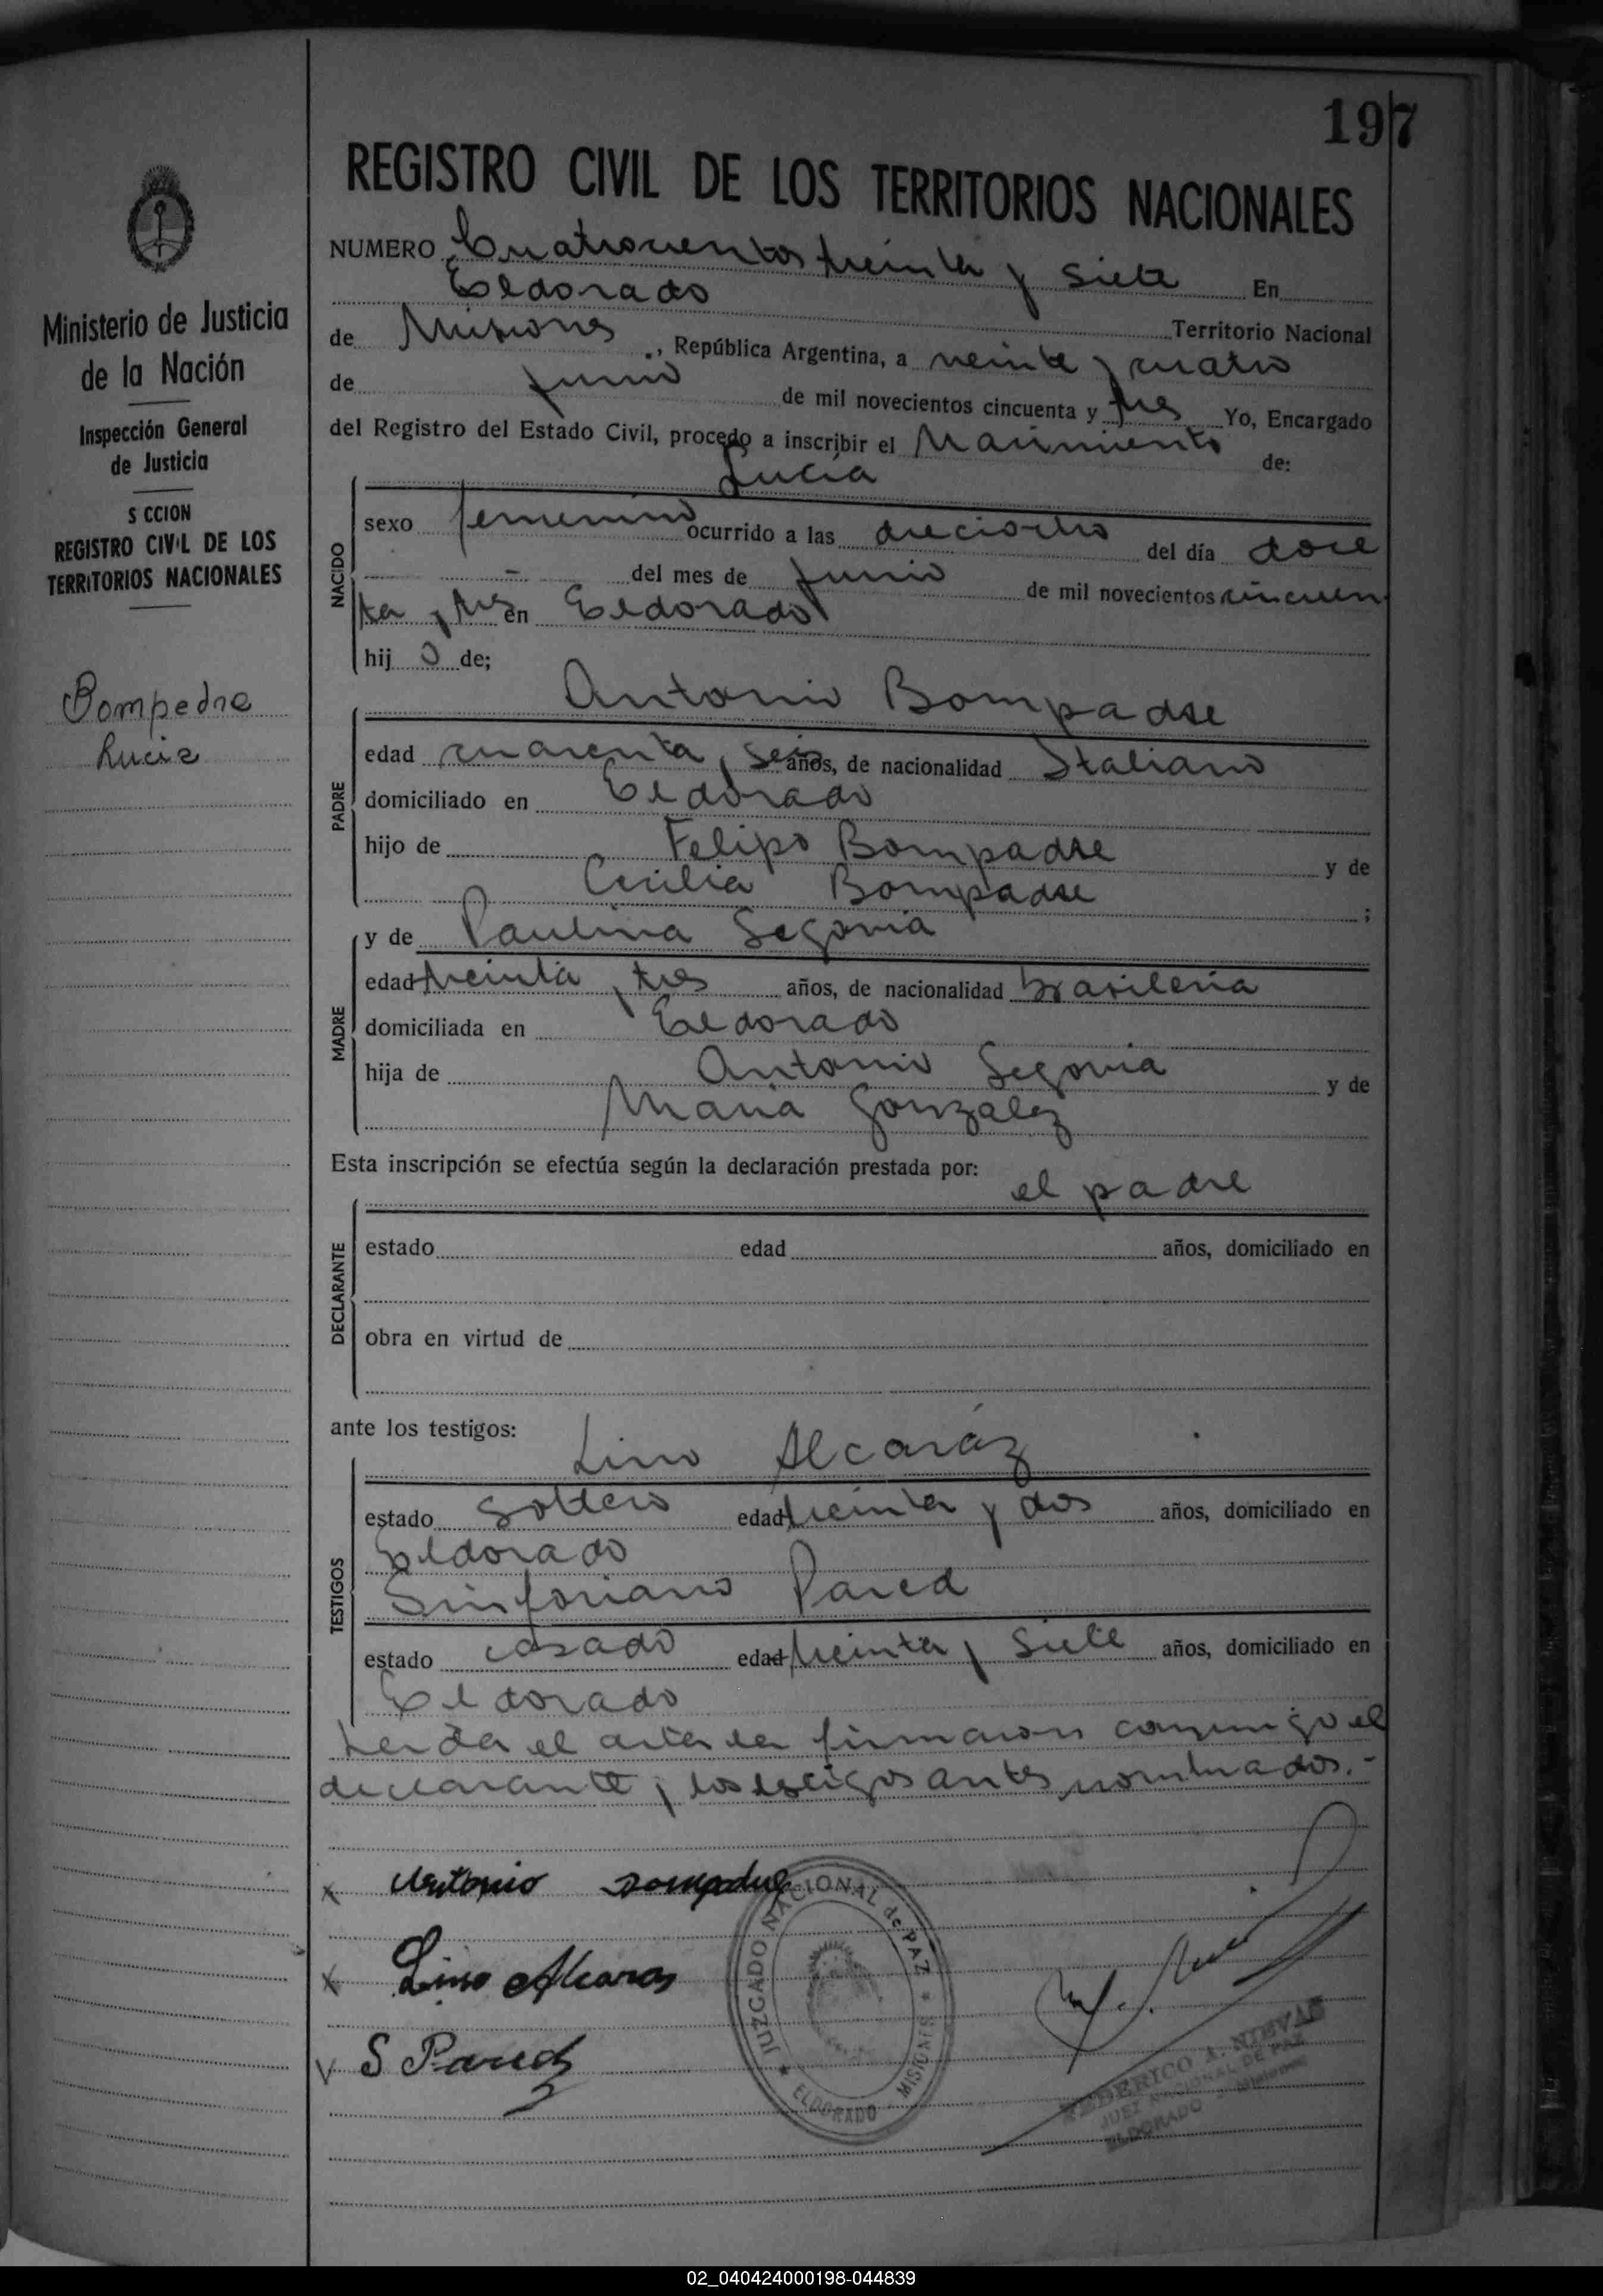 197
REGISTRO CIVIL DE LOS TERRITORIOS NACIONALES
NUMERO Cuatrocientos treinta y siete En
Eldorado Territorio Nacional
de Misiones, República Argentina, a veinte y cuatro
de junio de mil novecientos cincuenta y tres Yo, Encargado
del Registro del Estado Civil, procedo a inscribir el Nacimiento de:
Lucía
NACIDO
sexo femenino ocurrido a las dieciocho del día doce
- del mes de junio de mil novecientos cincuen
ta y tres en Eldorado
hij o de;
Antonio Bompadre
PADRE
edad cuarenta y seis años, de nacionalidad Italiano
domiciliado en Eldorado
hijo de Felipo Bompadre y de
Cecilia Bompadre ;
y de Paulina Segovia
MADRE
edad treinta y tres años, de nacionalidad brasileña
domiciliada en Eldorado
hija de Antonio Segovia y de
Maria Gonzalez
Esta inscripción se efectúa según la declaración prestada por:
el padre
DECLARANTE
estado edad años, domiciliado en
obra en virtud de
ante los testigos:
Lino Alcaráz
TESTIGOS
estado soltero edad treinta y dos años, domiciliado en
Eldorado
Sinforiano Pared
estado casado edad treinta y siete años, domiciliado en
Eldorado
Leida el acta la firmaron conmigo el
declarante y los testigos antes nombrados.-
x Antonio Bompadre
x Lino Alcaras
S. Pared
JUZGADO NACIONAL de PAZ
ELDORADO - MISIONES
FEDERICO A. NIEVAS
JUEZ NACIONAL DE PAZ
ELDORADO Misiones
Ministerio de Justicia
de la Nación
Inspección General
de Justicia
S CCION
REGISTRO CIVIL DE LOS
TERRITORIOS NACIONALES
Bompedre
Lucia
02_040424000198-044839